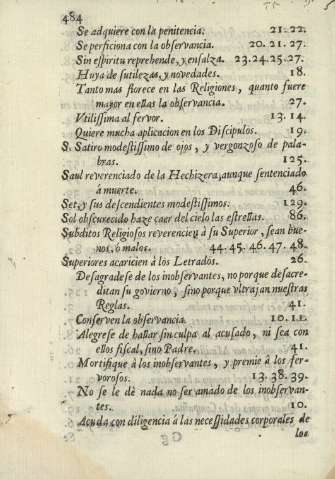 484
Se adquiere con la penitencia. 21. 22.
Se perficiona con la observancia. 20. 21. 27.
Sin espiritu reprehende, y ensalza. 23. 24. 25. 27.
Huya de sutilezas, y novedades. 18.
Tanto mas florece en las Religiones, quanto fuere
mayor en ellas la observancia. 27.
Vtilissima al fervor. 13. 14.
Quiere mucha aplicacion en los Discipulos. 19.
S. Satiro modestissimo de ojos, y vergonzoso de pala-
bras. 125.
Saul reverenciado de la Hechizera, aunque sentenciado
à muerte. 46.
Set, y sus descendientes modestissimos. 129.
Sol obscurecido haze caer del cielo las estrellas. 86.
Subditos Religiosos reverencien à su Superior, sean bue-
nos, ò malos. 44. 45. 46. 47. 48.
Superiores acaricien à los Letrados. 26.
Desagradese de los inobservantes, no porque desacre-
ditan su govierno, sino porque vltrajan nuestras
Reglas. 41.
Conserven la observancia. 10. 11.
Alegrese de hallar sin culpa al acusado, ni sea con
ellos fiscal, sino Padre. 41.
Mortifique à los inobservantes, y premie à los fer-
vorosos. 13. 38. 39.
No se le dè nada no ser amado de los inobservan-
tes. 10.
Acuda con diligencia à las necessidades corporales de
los